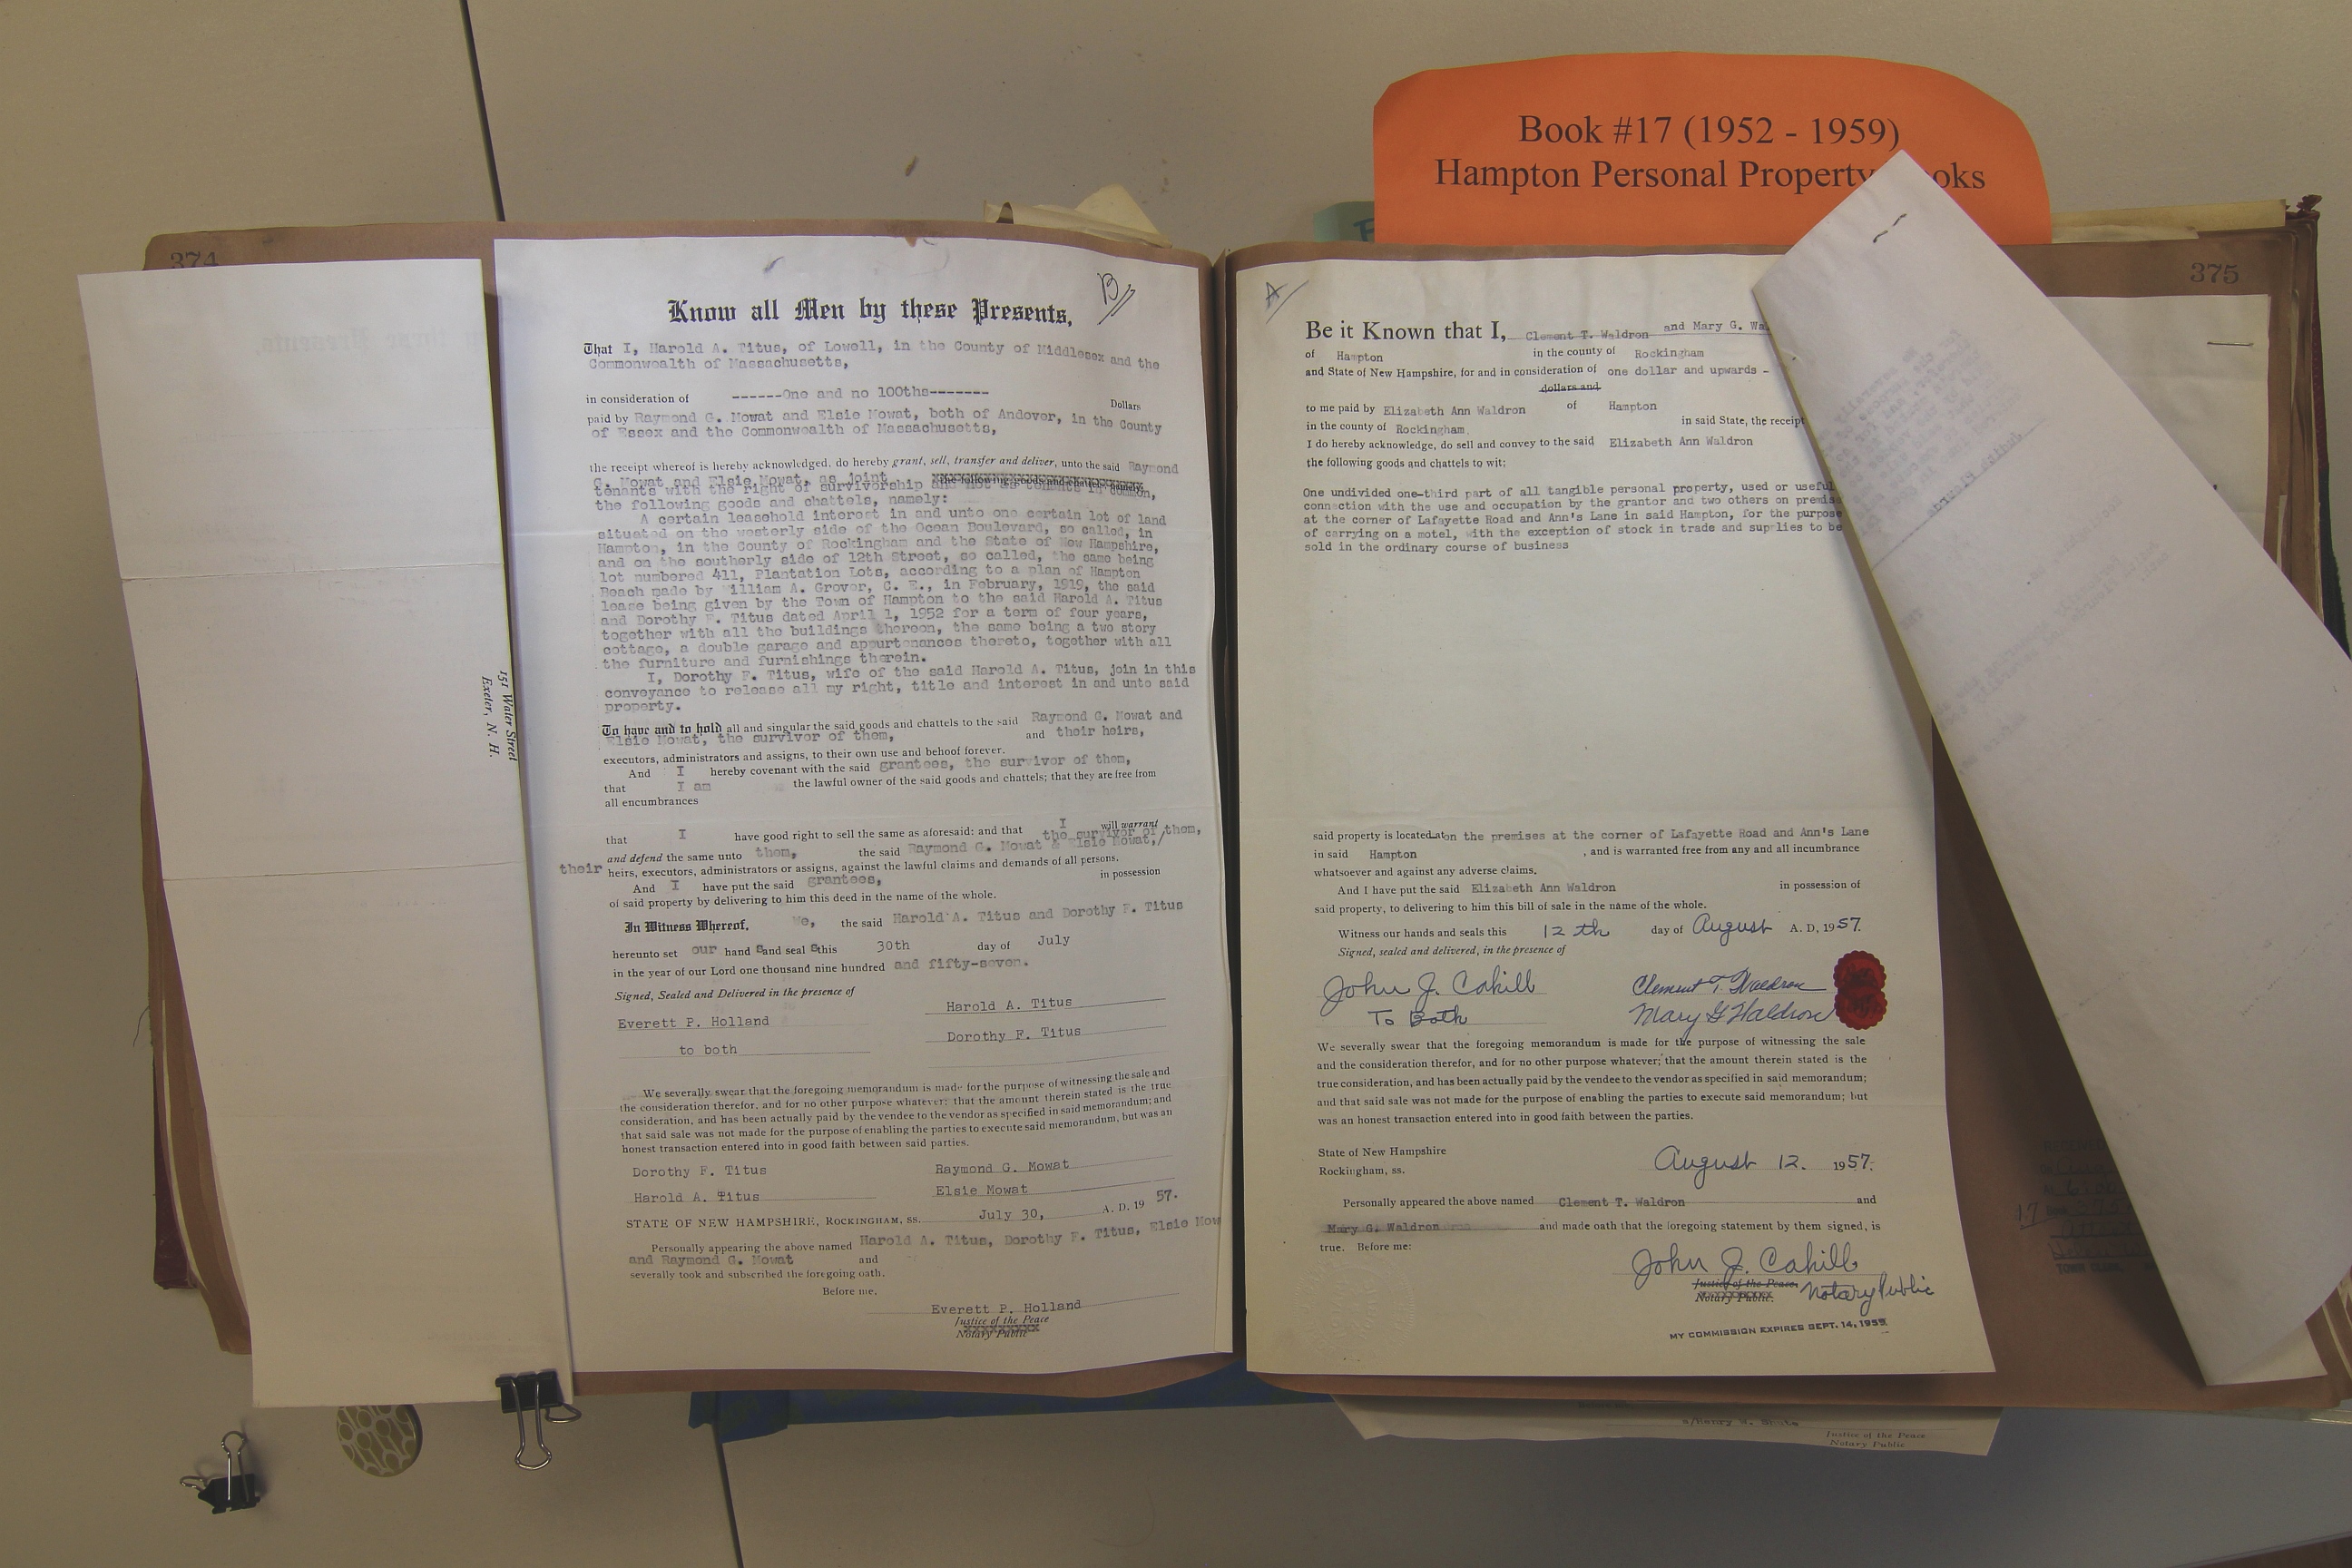 Book #17 (1952 - 1959)
Hampton Personal Property
374
151 Water Street
Exeter, N. H.
B
Know all Men by these Presents,
That I, Harold A. Titus, of Lowell, in the County of Middlesex and the
Commonwealth of Massachusetts,
in consideration of ------One and no 100ths-------
Dollars
paid by Raymond G. Mowat and Elsie Mowat, both of Andover, in the County
of Essex and the Commonwealth of Massachusetts,
the receipt whereof is hereby acknowledged, do hereby grant, sell, transfer and deliver, unto the said Raymond
G. Mowat and Elsie Mowat, as joint the following goods and chattels, namely:
tenants with the right of survivorship and not as tenants in common,
the following goods and chattels, namely:
A certain leasehold interest in and unto one certain lot of land
situated on the westerly side of the Ocean Boulevard, so called, in
Hampton, in the County of Rockingham and the State of New Hampshire,
and on the southerly side of 12th Street, so called, the same being
lot numbered 411, Plantation Lots, according to a plan of Hampton
Beach made by William A. Grover, C. E., in February, 1919, the said
lease being given by the Town of Hampton to the said Harold A. Titus
and Dorothy F. Titus dated April 1, 1952 for a term of four years,
together with all the buildings thereon, the same being a two story
cottage, a double garage and appurtenances thereto, together with all
the furniture and furnishings therein.
I, Dorothy F. Titus, wife of the said Harold A. Titus, join in this
conveyance to release all my right, title and interest in and unto said
property.
To have and to hold all and singular the said goods and chattels to the said Raymond G. Mowat and
Elsie Mowat, the survivor of them, and their heirs,
executors, administrators and assigns, to their own use and behoof forever.
And I hereby covenant with the said grantees, the survivor of them,
that I am the lawful owner of the said goods and chattels; that they are free from
all encumbrances
that I have good right to sell the same as aforesaid: and that I will warrant
the survivor of them,
and defend the same unto them, the said Raymond G. Mowat & Elsie Mowat,/
their heirs, executors, administrators or assigns, against the lawful claims and demands of all persons.
And I have put the said grantees, in possession
of said property by delivering to him this deed in the name of the whole.
In Witness Whereof, We, the said Harold A. Titus and Dorothy F. Titus
hereunto set our hand s and seal s this 30th day of July
in the year of our Lord one thousand nine hundred and fifty-seven.
Signed, Sealed and Delivered in the presence of
Everett P. Holland Harold A. Titus
to both Dorothy F. Titus
We severally swear that the foregoing memorandum is made for the purpose of witnessing the sale and
the consideration therefor, and for no other purpose whatever: that the amount therein stated is the true
consideration, and has been actually paid by the vendee to the vendor as specified in said memorandum; and
that said sale was not made for the purpose of enabling the parties to execute said memorandum, but was an
honest transaction entered into in good faith between said parties.
Dorothy F. Titus Raymond G. Mowat
Harold A. Titus Elsie Mowat
STATE OF NEW HAMPSHIRE, ROCKINGHAM, SS. July 30, A. D. 19 57.
Personally appearing the above named Harold A. Titus, Dorothy F. Titus, Elsie Mow
and Raymond G. Mowat and
severally took and subscribed the foregoing oath.
Before me,
Everett P. Holland
Justice of the Peace
Notary Public
375
A
Be it Known that I, Clement T. Waldron and Mary G. Wa
of Hampton in the county of Rockingham
and State of New Hampshire, for and in consideration of one dollar and upwards -
dollars and
to me paid by Elizabeth Ann Waldron of Hampton
in the county of Rockingham, in said State, the receipt
I do hereby acknowledge, do sell and convey to the said Elizabeth Ann Waldron
the following goods and chattels to wit:
One undivided one-third part of all tangible personal property, used or useful
connection with the use and occupation by the grantor and two others on premise
at the corner of Lafayette Road and Ann's Lane in said Hampton, for the purpose
of carrying on a motel, with the exception of stock in trade and supplies to be
sold in the ordinary course of business
said property is located at on the premises at the corner of Lafayette Road and Ann's Lane
in said Hampton , and is warranted free from any and all incumbrance
whatsoever and against any adverse claims.
And I have put the said Elizabeth Ann Waldron in possession of
said property, to delivering to him this bill of sale in the name of the whole.
Witness our hands and seals this 12th day of August A. D, 1957.
Signed, sealed and delivered, in the presence of
John J. Cahill Clement T. Waldron
To Both Mary G Waldron
We severally swear that the foregoing memorandum is made for the purpose of witnessing the sale
and the consideration therefor, and for no other purpose whatever; that the amount therein stated is the
true consideration, and has been actually paid by the vendee to the vendor as specified in said memorandum;
and that said sale was not made for the purpose of enabling the parties to execute said memorandum; but
was an honest transaction entered into in good faith between the parties.
State of New Hampshire
Rockingham, ss. August 12. 1957.
Personally appeared the above named Clement T. Waldron and
Mary G. Waldron and made oath that the foregoing statement by them signed, is
true. Before me:
John J. Cahill
Justice of the Peace.
Notary Public. Notary Public
MY COMMISSION EXPIRES SEPT. 14, 1959
s/Henry W. Shute
Justice of the Peace
Notary Public